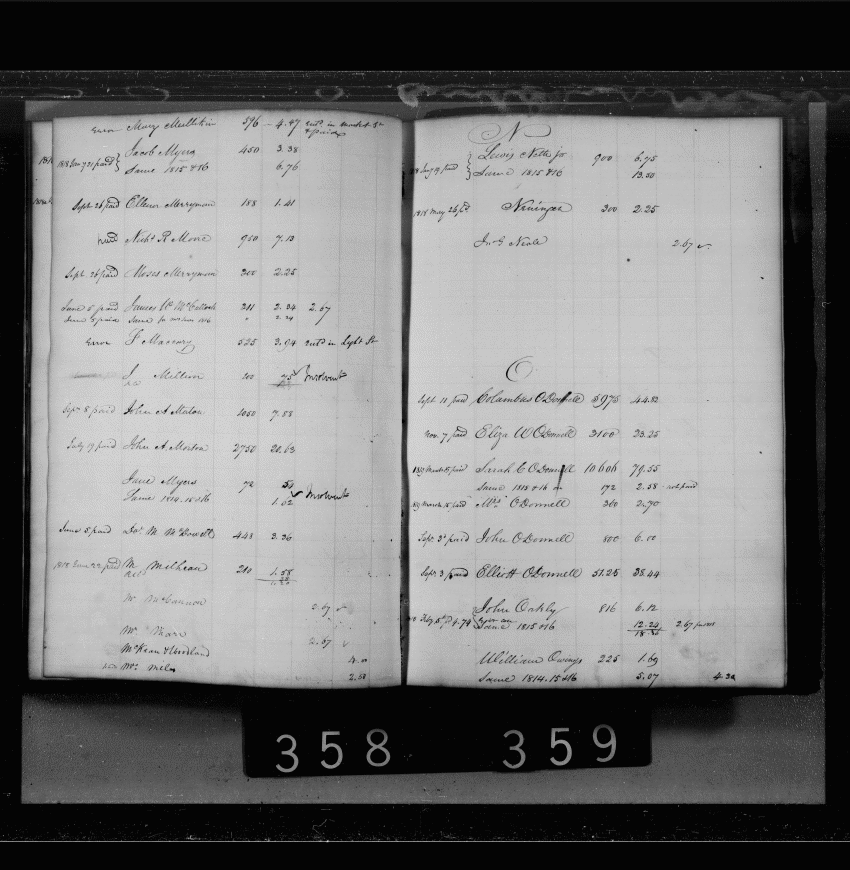 Error Mary Mullikin 596 4.47 entd in market St
& paid
Jacob Myers 450 3.38
1818 Jany 21 paid Same 1815 & 16 6.76
Sept 26 paid Ellenor Merryman 188 1.41
paid Nichs R Moore 950 7.13
Sept. 26 paid Moses Merryman 300 2.25
June 5 paid James W McCulloch 311 2.34 2.67
June 5 paid Same for 1816 " 2.34
Error J Maccory 525 3.94 entd in Light St
J Million 100 .75 Insolvent
Sept 8 paid John A 1050 7.88
July 17 paid John A. Morton 2750 20.63
Jane Myers 72 54
Same 1814.15 & 16 1.62 Insolvent
June 5 paid M McDowell 448 3.36
1818 June 22 paid M 210 1.58
Mr McCannon 2.67
Mr 2.67
McKean & Woodland 4.00
Mr 2.58
N
Lewis Neth jr 900 6.75
1818 Jany 19 paid Same 1815 & 16 13.50
1818 May 26 pd Nininger 300 2.25
Jno G Neale 2.67
O
Sept. 10 paid Columbus O'Donnell 5975 44.82
Nov. 7 paid Eliza W O'Donnell 3100 23.25
paid Sarah C O'Donnell 10606 79.55
Same 1815 & 16 on 172 2.58 not paid
March 15 paid Mrs O'Donnell 360 2.70
Sept. 3d paid John O'Donnell 800 6.00
Sept. 3 paid Elliott O'Donnell 51.25 38.44
John Oakly 816 6.12
Feby 5 pd 4.74 Same 1815 & 16 12.24 2.67
18.36
William Owings 225 1.69
Same 1814.15 & 16 5.07
358 359